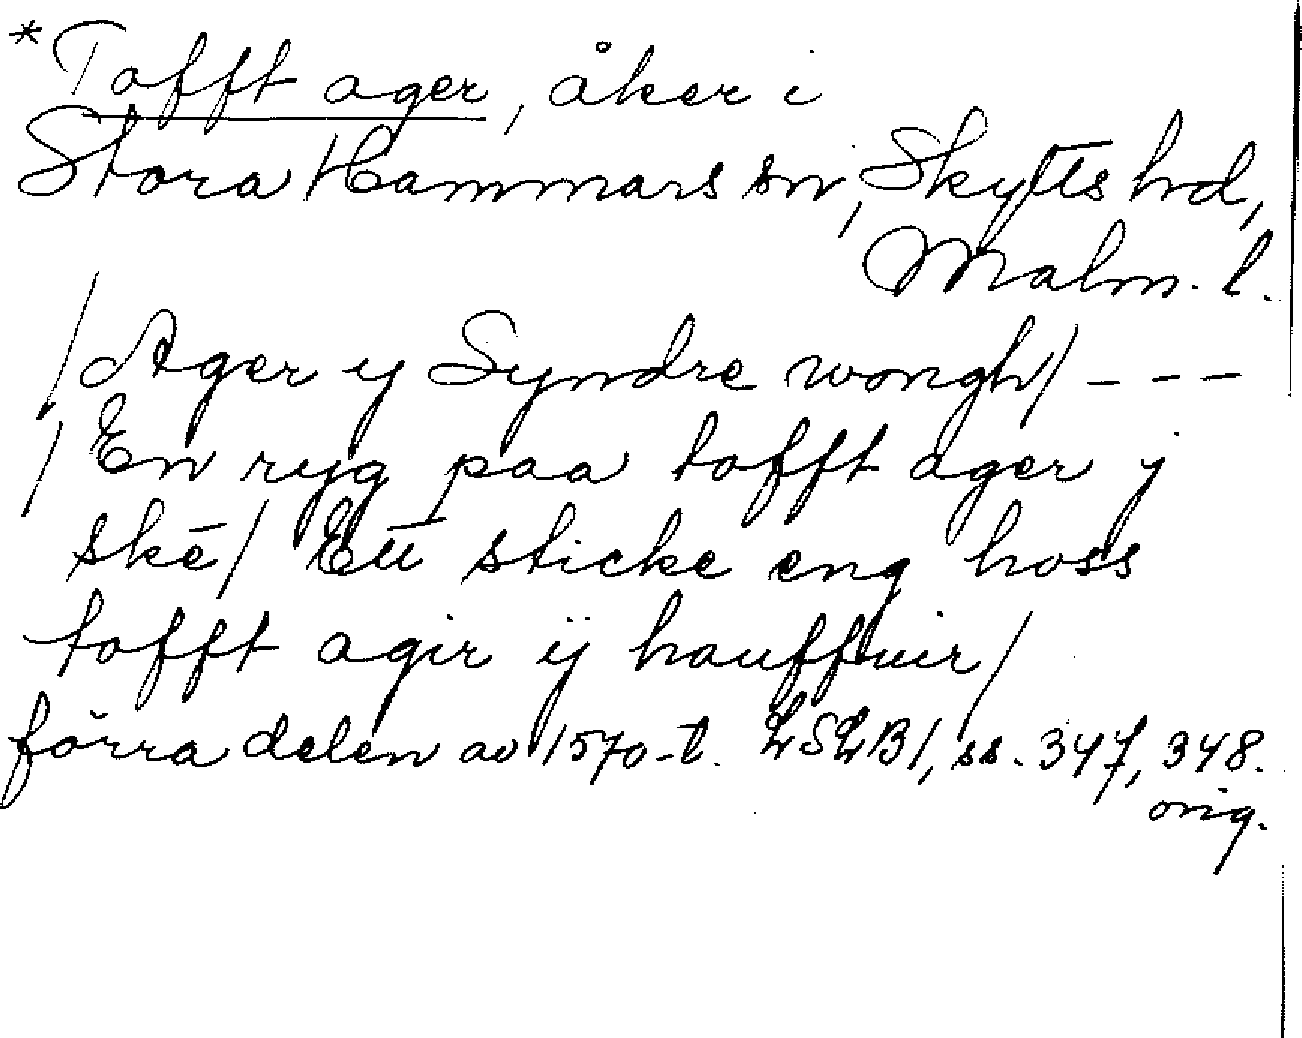 *Tofft ager, åker i
Stora Hammars sn, Skytts hd,
Malm. l.
/Ager y Syndre wongh/ ---
/En ryg paa tofft ager y
skē/ Ett sticke eng hoss
tofft agir ÿ hauffuir/
förra delen av 1570-t. LSLB1, ss. 347, 348.
orig.